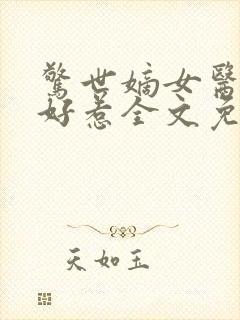 驚世嫡女醫
好惹全文免
天如玉